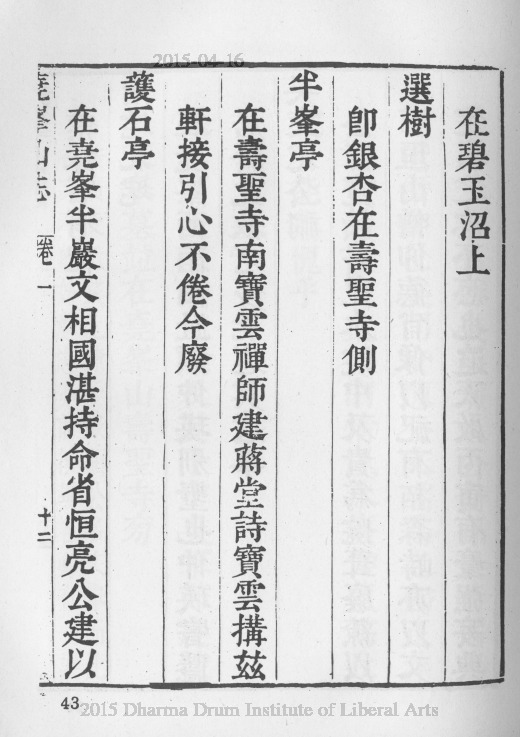 2015-04-16
在碧玉沼上
選樹
卽銀杏在壽聖寺側
半峯亭
在壽聖寺南寶雲禪師建蔣堂詩寶雲搆兹
軒接引心不倦今廢
護石亭
在堯峯半巖文相國湛持命省恒亮公建以
堯峯山志 卷一 十二
43
2015 Dharma Drum Institute of Liberal Arts